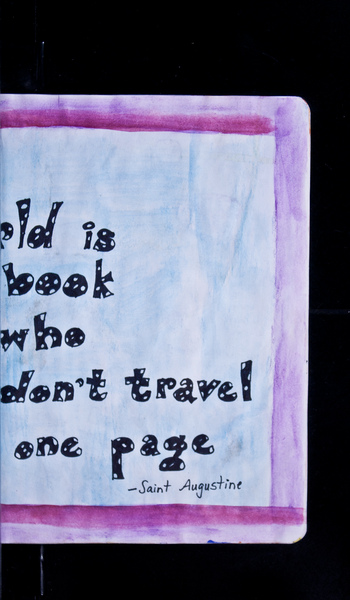 is
book
who
don't travel
one page
—Saint Augustine